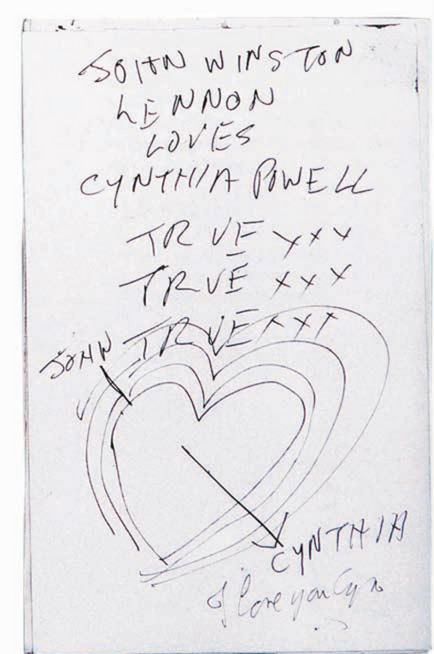 JOHN WINSTON
LENNON
LOVES
CYNTHIA POWELL
TRUE xxx
TRUE xxx
TRUE xxx
JOHN
CYNTHIA
I love you Cyn